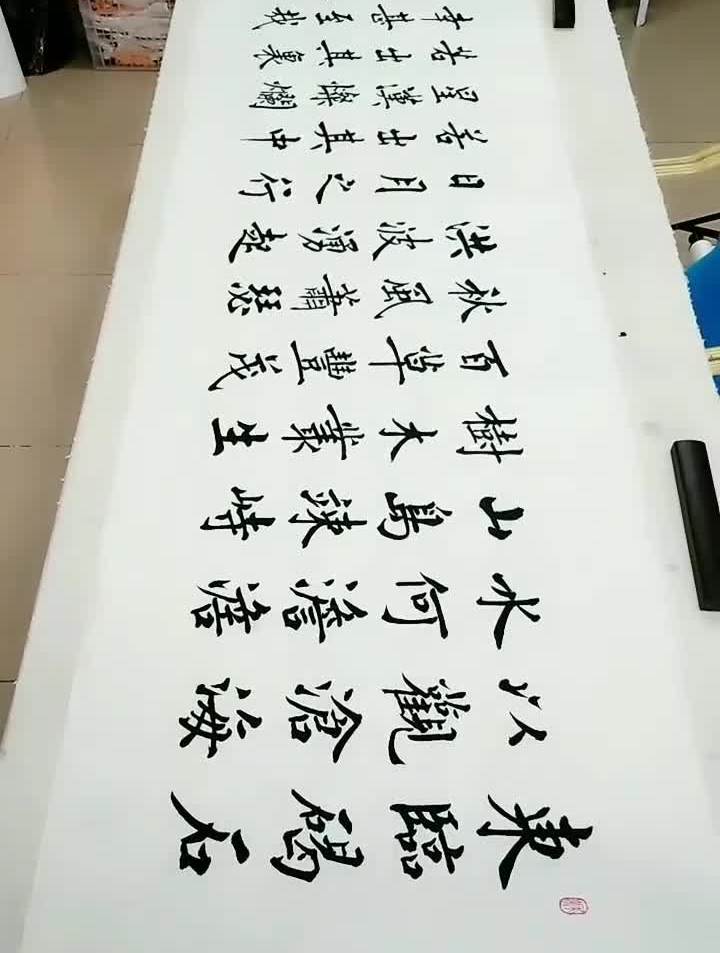 東臨碣石
以觀滄海
水何澹澹
山島竦峙
樹木叢生
百草豐茂
秋風蕭瑟
洪波湧起
日月之行
若出其中
星漢燦爛
若出其裏
幸甚至哉